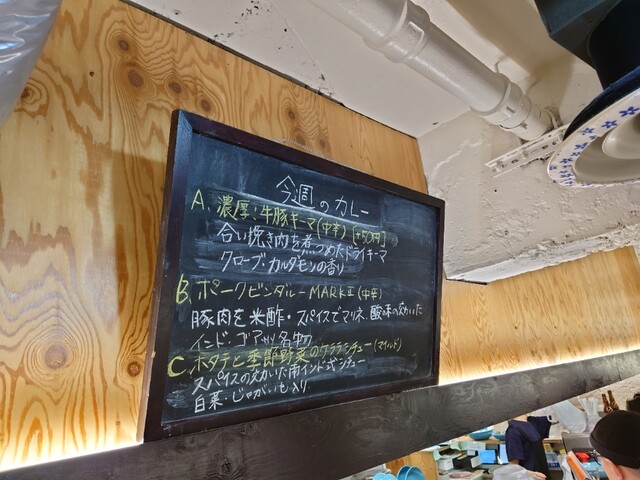 今週のカレー
A. 濃厚・牛豚キーマ(中辛) [+50円]
合い挽き肉を煮つめたドライキーマ
クローブ・カルダモンの香り
B. ポークビンダルーMARKⅡ(中辛)
豚肉を米酢・スパイスでマリネ、酸味の効いた
インド・ゴアの名物
C. ホタテと季節野菜のクラランシチュー(マイルド)
スパイスの効いた南インド式シチュー
白菜・じゃがいも入り